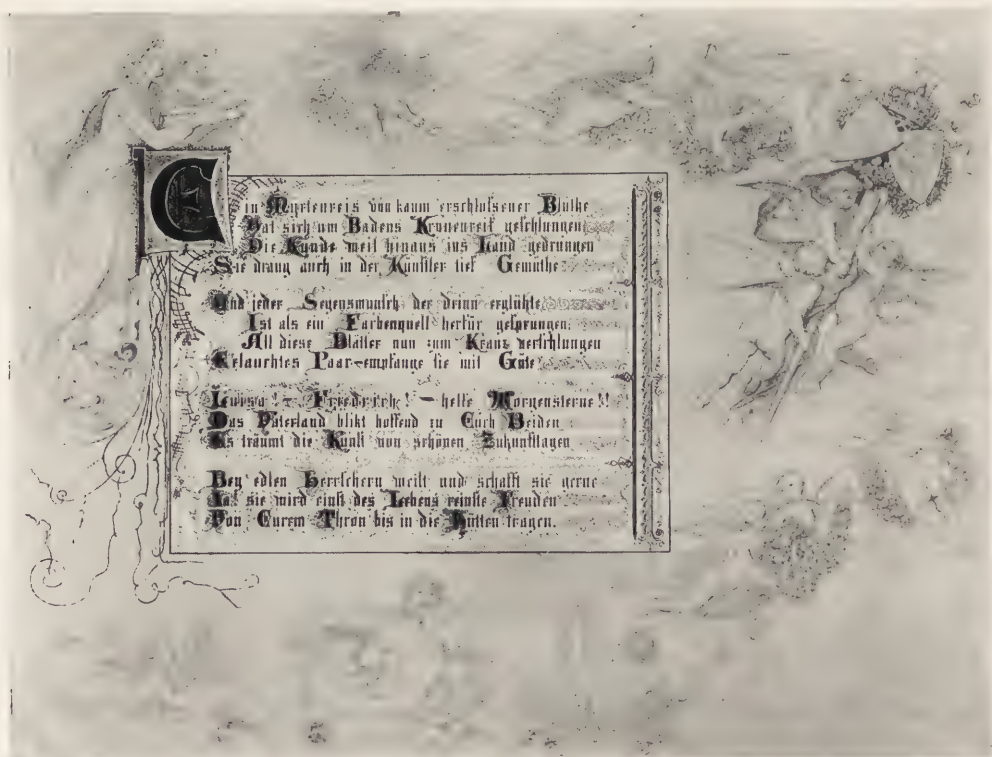 Ein Myrtenreis von kaum erschlossener Blüthe
Hat sich um Badens Kronenreif geschlungen
Die Kunde weit hinaus ins Land gedrungen
Sie drang auch in der Künstler tief Gemüthe
Und jeder Segenswunsch der drinn erglühte
Ist als ein Farbenquell herfür gesprungen.
All diese Blätter nun zum Kranz verschlungen
Erlauchtes Paar – empfange sie mit Güte
Louisa! – Friedrich! – helle Morgensterne!!
Das Vaterland blikt hoffend zu Euch Beiden
Es träumt die Kunst von schönen Zukunfttagen
Bey edlen Herrschern weilt und schafft sie gerne
Ja! sie wird einst des Lebens reinste Freuden
Von Eurem Thron bis in die Hütten tragen.